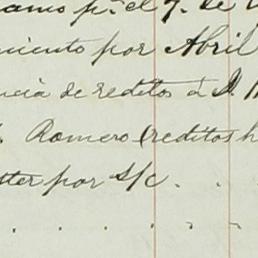 ramo pª. el 7. de
miento por Abril
ncia de reditos á D.
Romero (reditos h
ster por S/C.